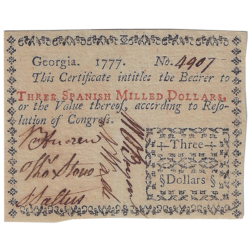 Georgia. 1777. No. 4907
This Certificate intitles the Bearer to
THREE SPANISH MILLED DOLLARS,
or the Value thereof, according to Reso-
lution of Congress.
Three
Dollars